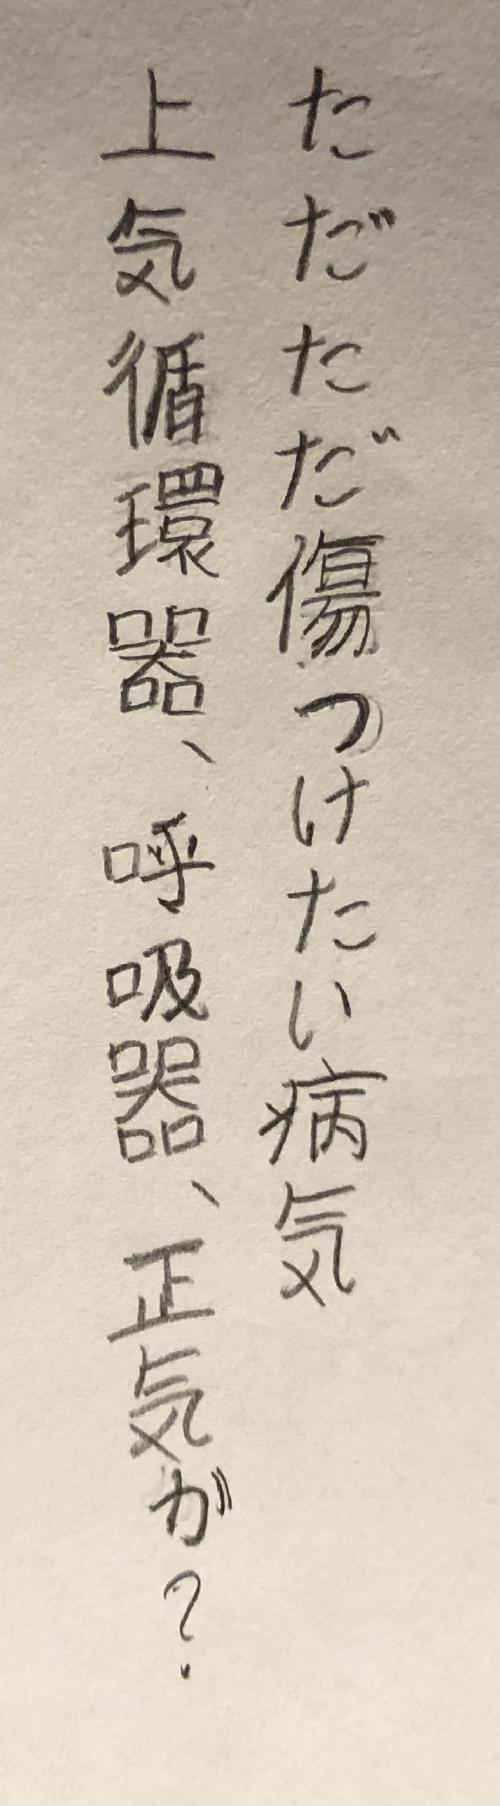 ただただ傷つけたい病気
上気循環器、呼吸器、正気が?